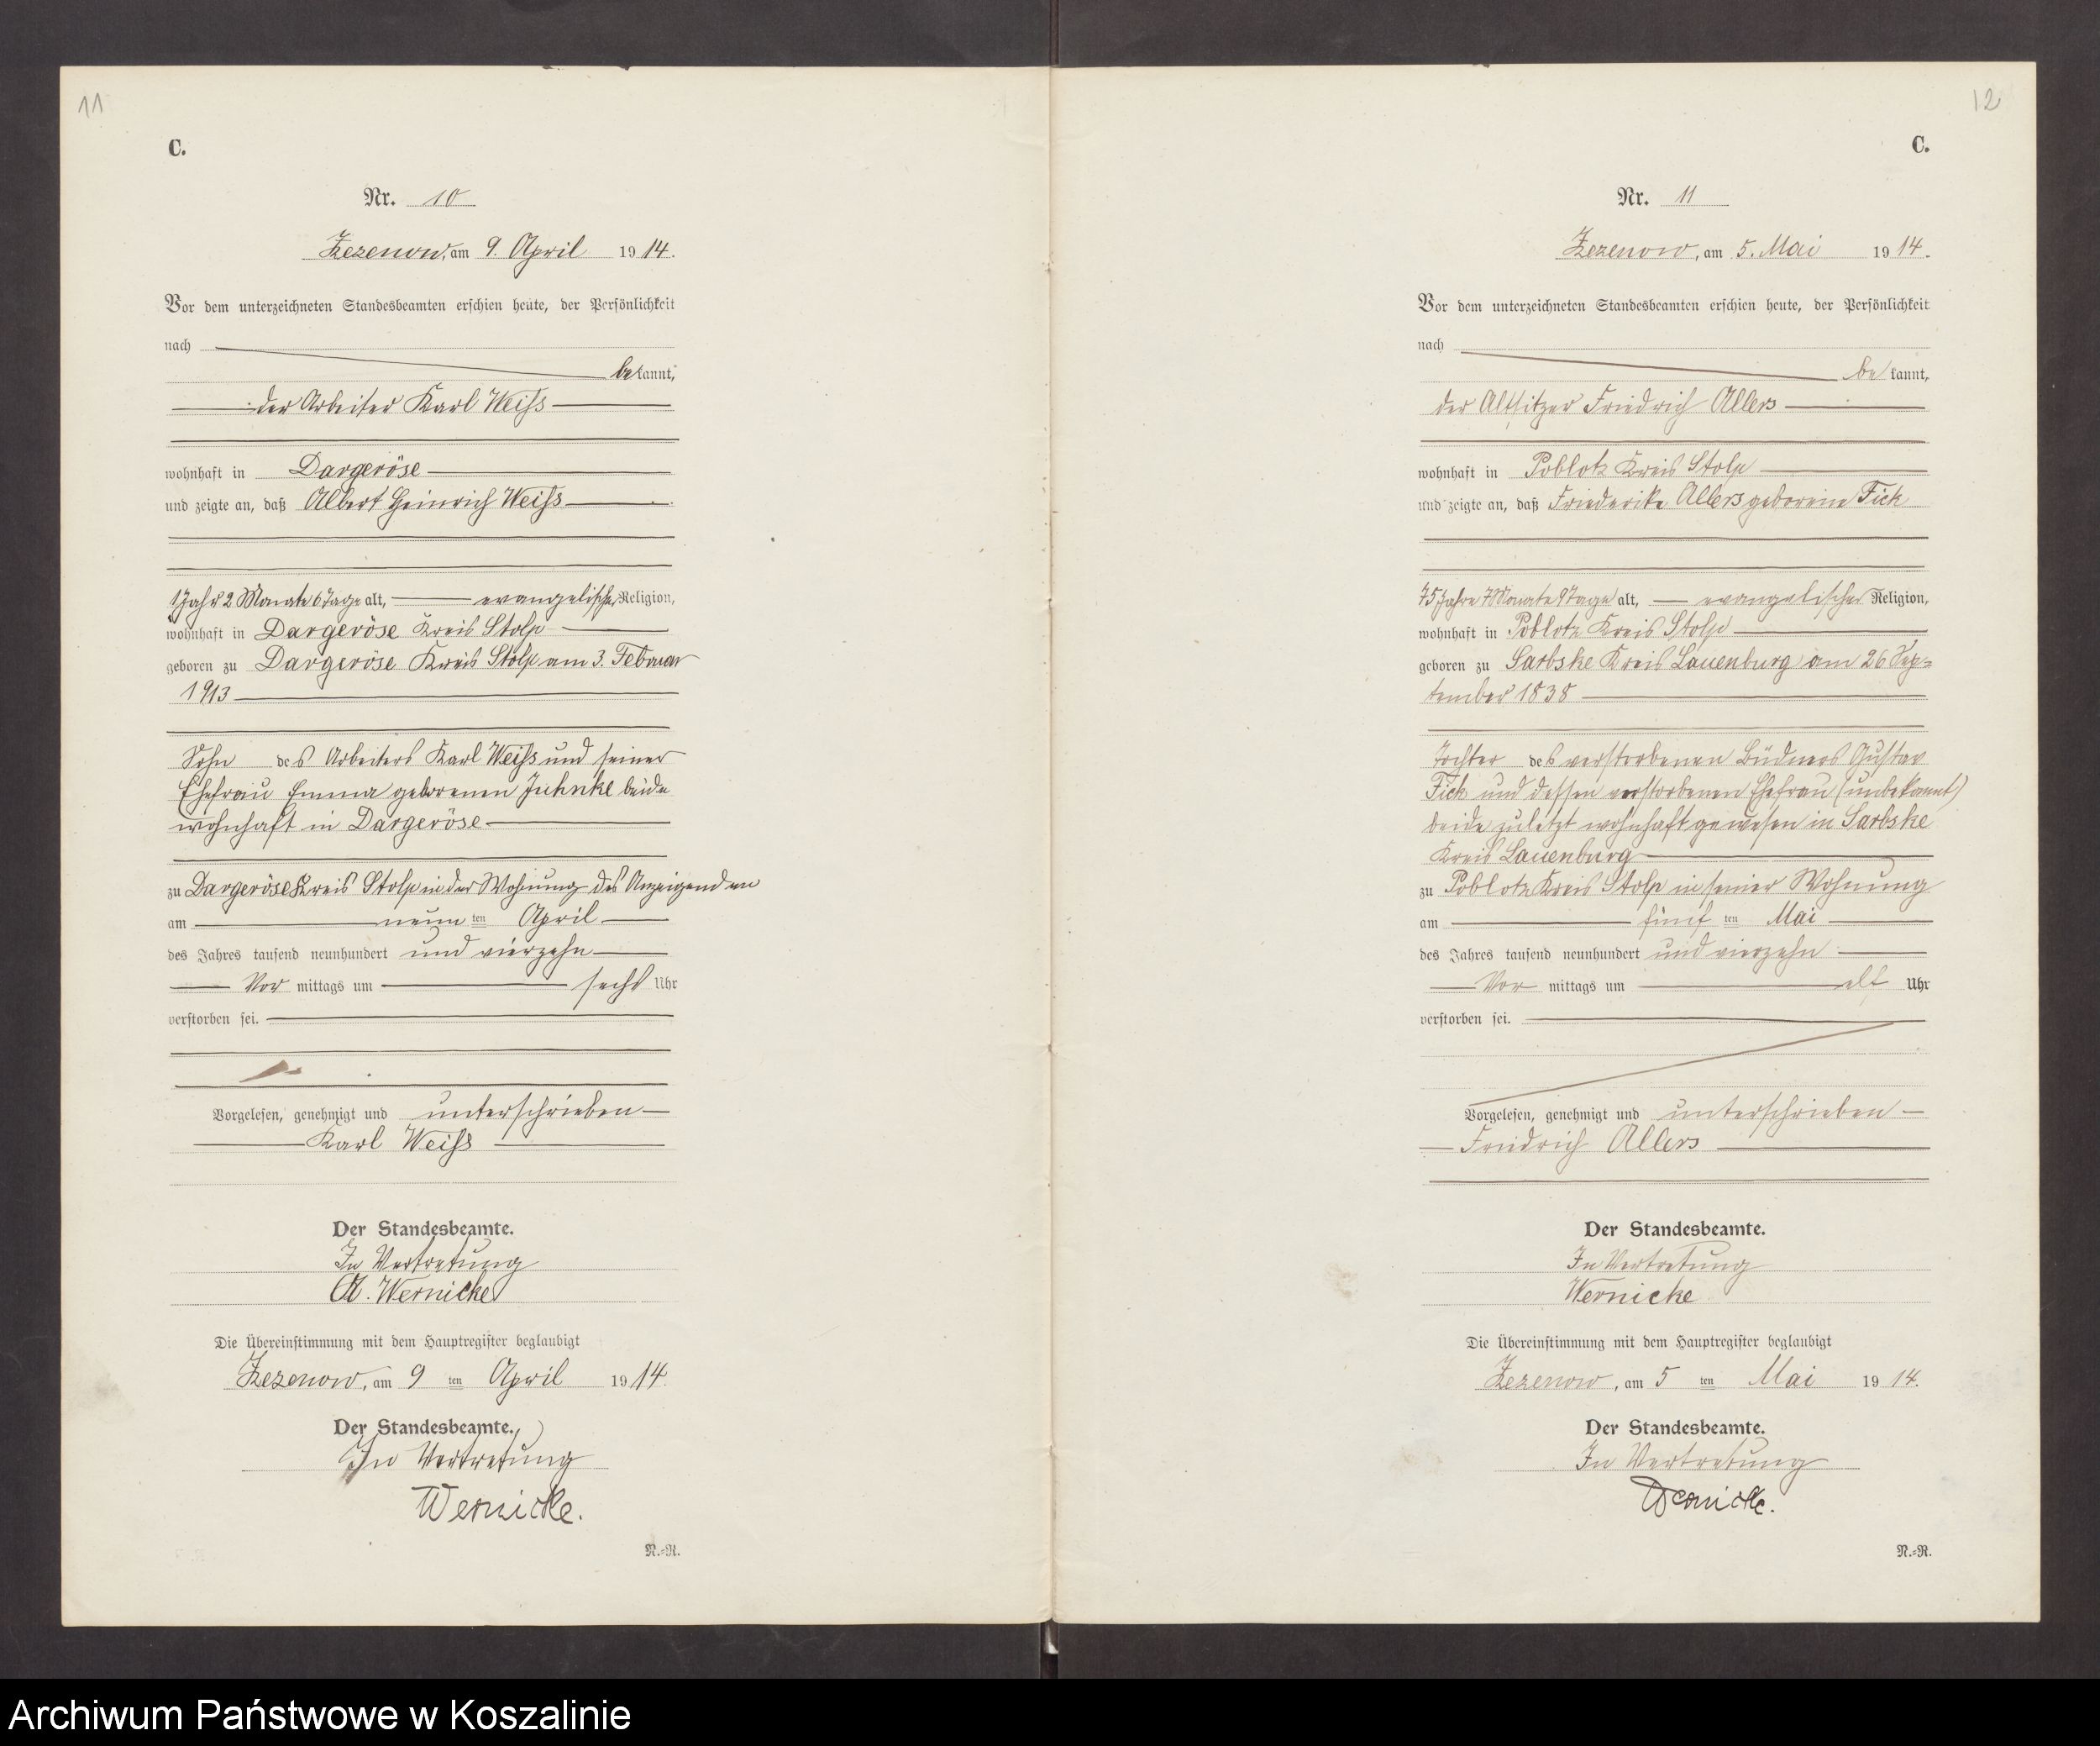 11
C.
Nr. 10
Zezenow, am 9. April 1914.
Vor dem unterzeichneten Standesbeamten erschien heute, der Persönlichkeit
nach
bekannt,
der Arbeiter Karl Weiß
wohnhaft in Dargeröse
und zeigte an, daß Albert Heinrich Weiß
1 Jahr 2 Monate 6 Tage alt, evangelischer Religion,
wohnhaft in Dargeröse Kreis Stolp
geboren zu Dargeröse Kreis Stolp am 3. Februar
1913
Sohn des Arbeiters Karl Weiß und seiner
Ehefrau Emma geborenen Juhnke beide
wohnhaft in Dargeröse
zu Dargeröse Kreis Stolp in der Wohnung des Anzeigenden
am neun ten April
des Jahres tausend neunhundert und vierzehn
Vor mittags um sechs Uhr
verstorben sei.
Vorgelesen, genehmigt und unterschrieben
Karl Weiß
Der Standesbeamte.
In Vertretung
A. Wernicke
Die Übereinstimmung mit dem Hauptregister beglaubigt
Zezenow, am 9 ten April 1914.
Der Standesbeamte.
In Vertretung
Wernicke.
N.=R.
12
C.
Nr. 11
Zezenow, am 5. Mai 1914.
Vor dem unterzeichneten Standesbeamten erschien heute, der Persönlichkeit
nach
be kannt,
der Altsitzer Friedrich Allers
wohnhaft in Poblotz Kreis Stolp
und zeigte an, daß Friederike Allers geborene Fick
75 Jahre 7 Monate 9 Tage alt, evangelischer Religion,
wohnhaft in Poblotz Kreis Stolp
geboren zu Sarbske Kreis Lauenburg am 26 Sep=
tember 1838
Tochter des verstorbenen Büdners Gustav
Fick und dessen verstorbenen Ehefrau (unbekannt)
beide zuletzt wohnhaft gewesen in Sarbske
Kreis Lauenburg
zu Poblotz Kreis Stolp in seiner Wohnung
am fünf ten Mai
des Jahres tausend neunhundert und vierzehn
Vor mittags um elf Uhr
verstorben sei.
Vorgelesen, genehmigt und unterschrieben
Friedrich Allers
Der Standesbeamte.
In Vertretung
Wernicke
Die Übereinstimmung mit dem Hauptregister beglaubigt
Zezenow, am 5 ten Mai 1914.
Der Standesbeamte.
In Vertretung
Wernicke.
N.=R.
Archiwum Państwowe w Koszalinie